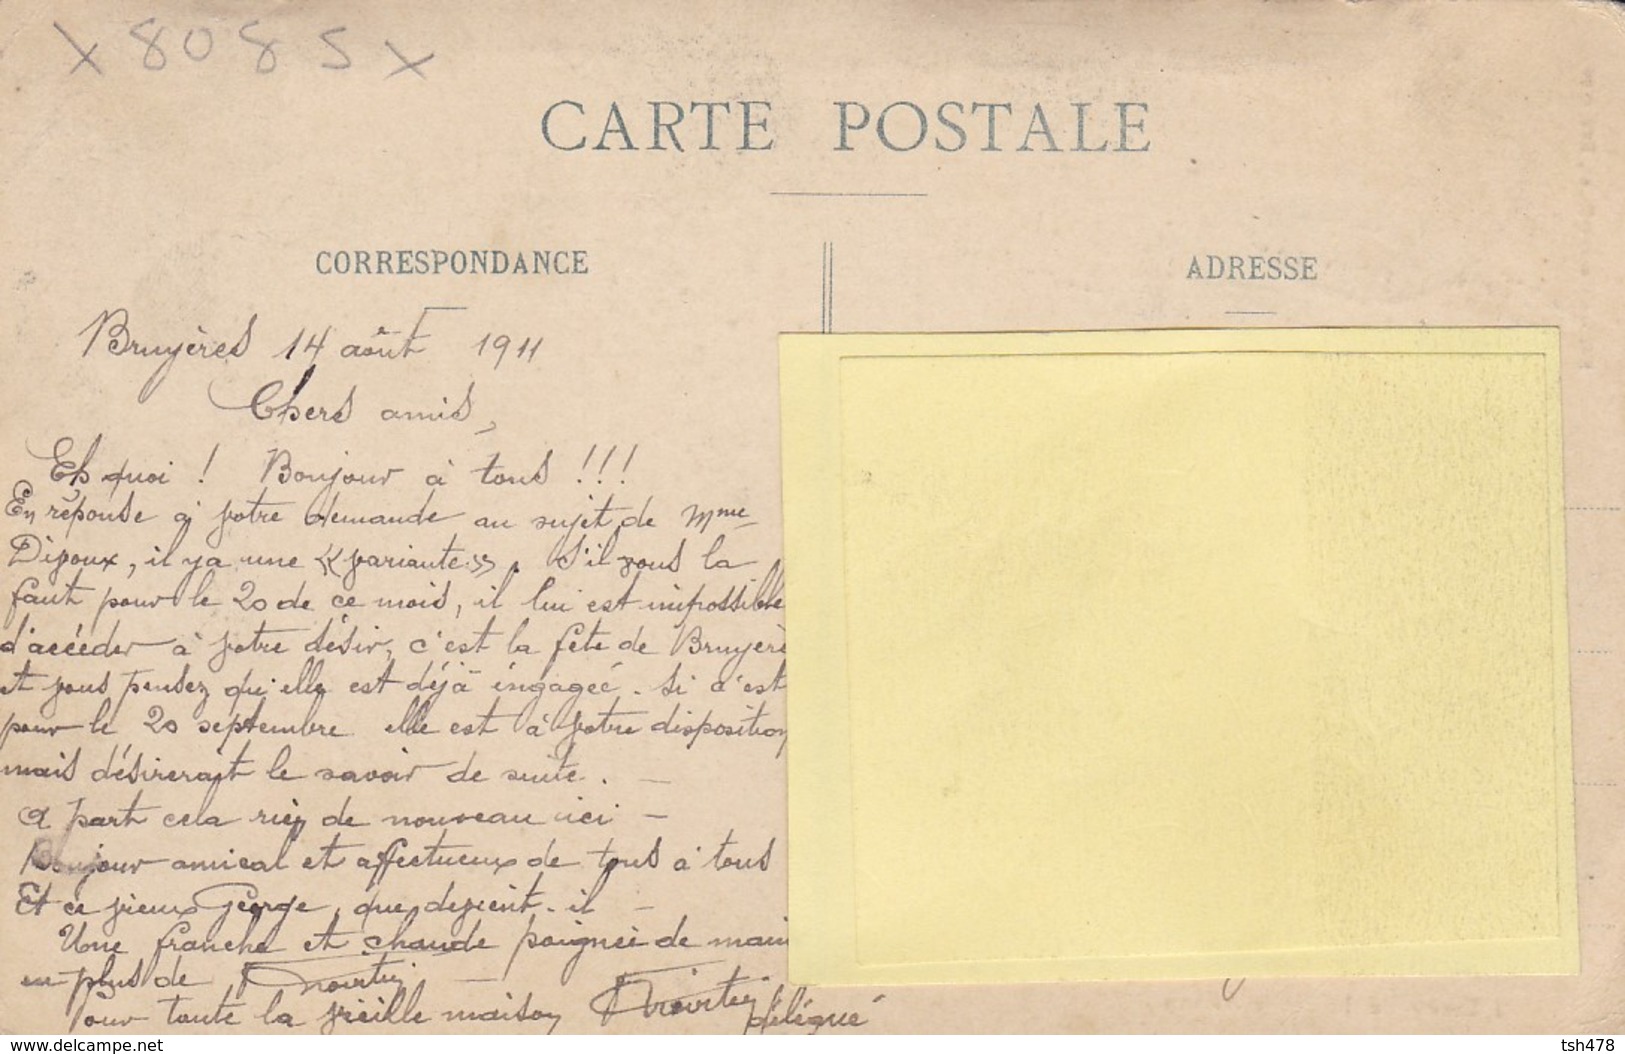 X 8085 X
CARTE POSTALE
CORRESPONDANCE
ADRESSE
Bruyères 14 août 1911
Chers amis,
Eh quoi ! Bonjour à tous !!!
En réponse à votre demande au sujet de Mme
Divoux, il y a une « variante ». S'il vous la
faut pour le 20 de ce mois, il lui est impossible
d'accéder à votre désir, c'est la fête de Bruyèr
et vous pensez qu'elle est déjà engagée. Si c'est
pour le 20 septembre elle est à votre disposition
mais désirerait le savoir de suite. —
A part cela rien de nouveau ici —
Bonjour amical et affectueux de tous à tous
Et ce vieux George, que devient-il —
Une franche et chaude poignée de main
en plus de —
Pour toute la vieille maison délégué
Delcampe.net
tsh478